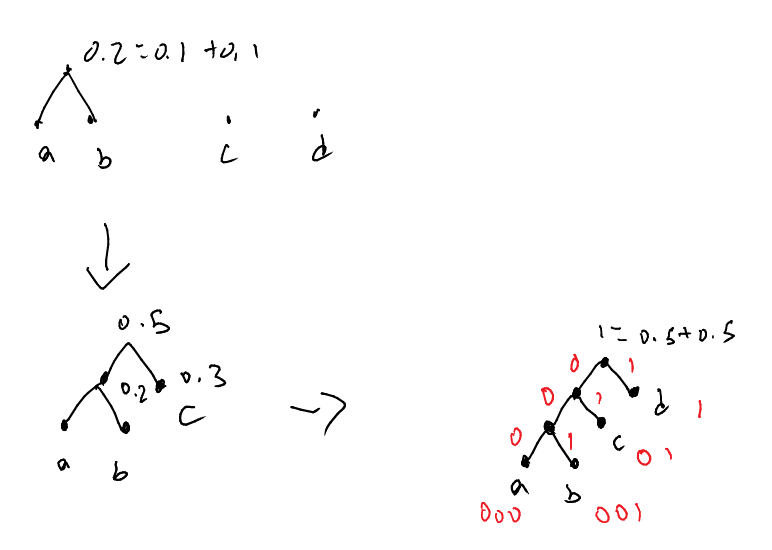 0.2=0.1+0.1
a b c d
0.5
0.2 0.3
c
a b
1=0.5+0.5
0 1
0 1 d 1
0 1 c 01
a b
000 001